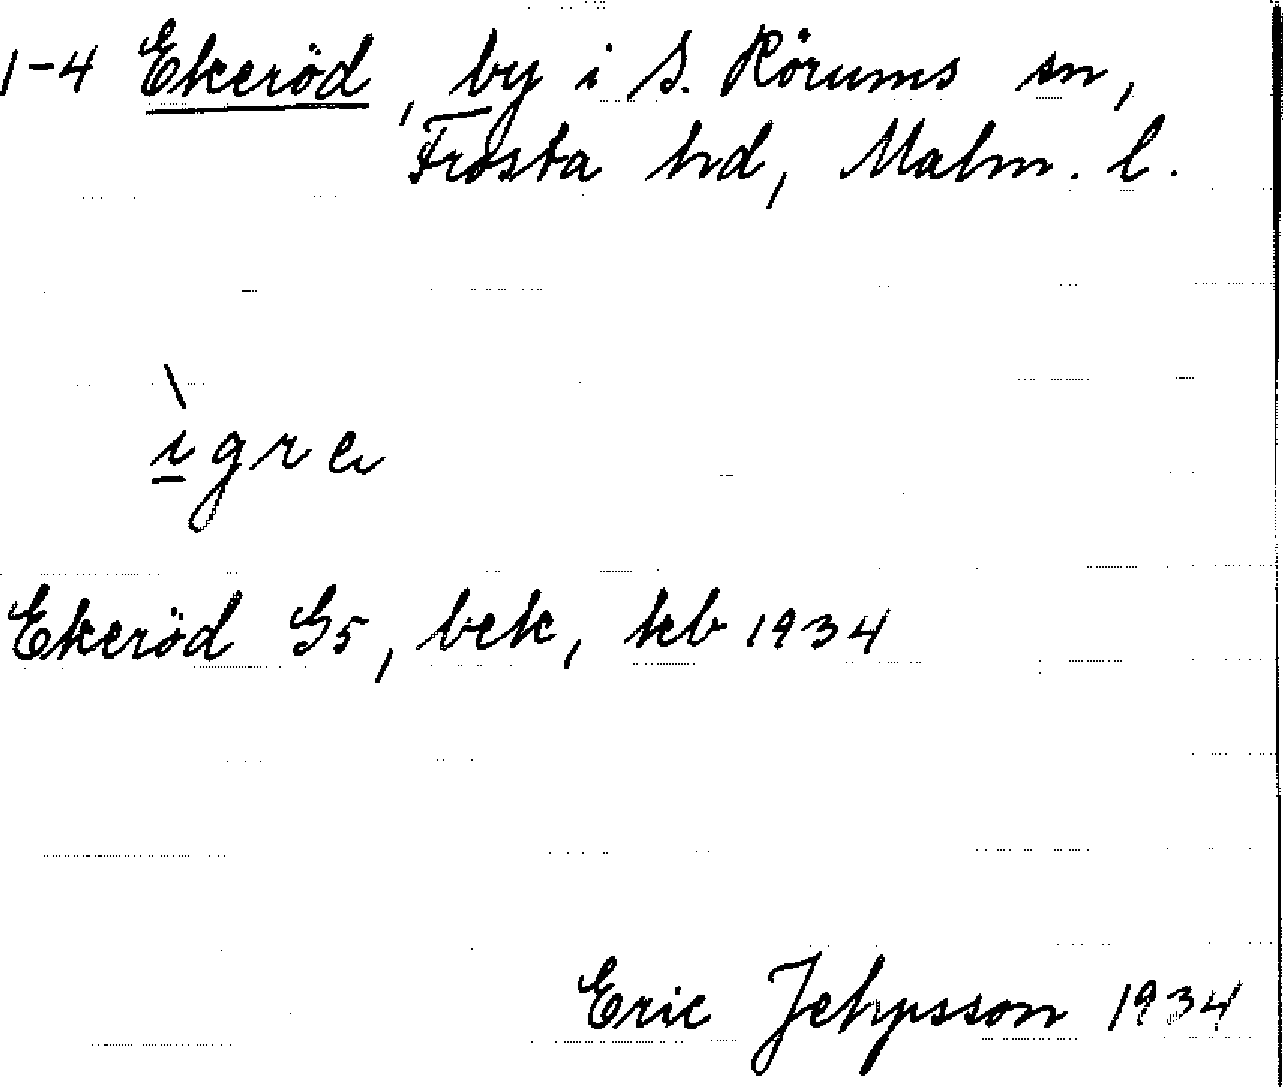 1-4 Ekeröd, by i S. Rörums sn,
Frosta hd, Malm. l.
ì̱gre
Ekeröd G5, bek, kb 1934
Eric Jehpsson 1934